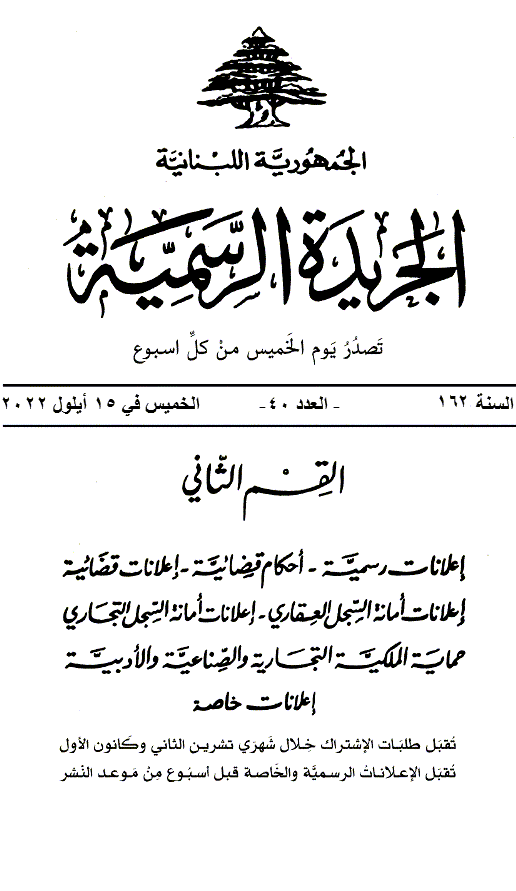 الجمهورية اللبنانية
الجريدة الرسمية
تَصدُرُ يَوم الخَميس منْ كلِّ اسبوع
السنة ١٦٢ - العدد ٤٠- الخميس في ١٥ أيلول ٢٠٢٢
القِسْم الثّاني
إعلانات رسميَّة - أحكام قضائيَّة - إعلانات قضائية
إعلانات أمانة السِّجل العقاري - إعلانات أمانة السِّجل التجاري
حماية الملكيَّة التجارية والصِّناعيَّة والأدبيَّة
إعلانات خاصة
تُقبَل طلبَات الإشتراك خِلال شَهرَي تشرين الثاني وكَانون الأول
تُقبَل الإعلاناتُ الرسميَّة والخَاصة قبل أسبُوع مِنْ مَوعد النَشر